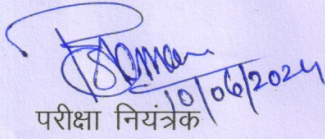 10/06/2024
परीक्षा नियंत्रक